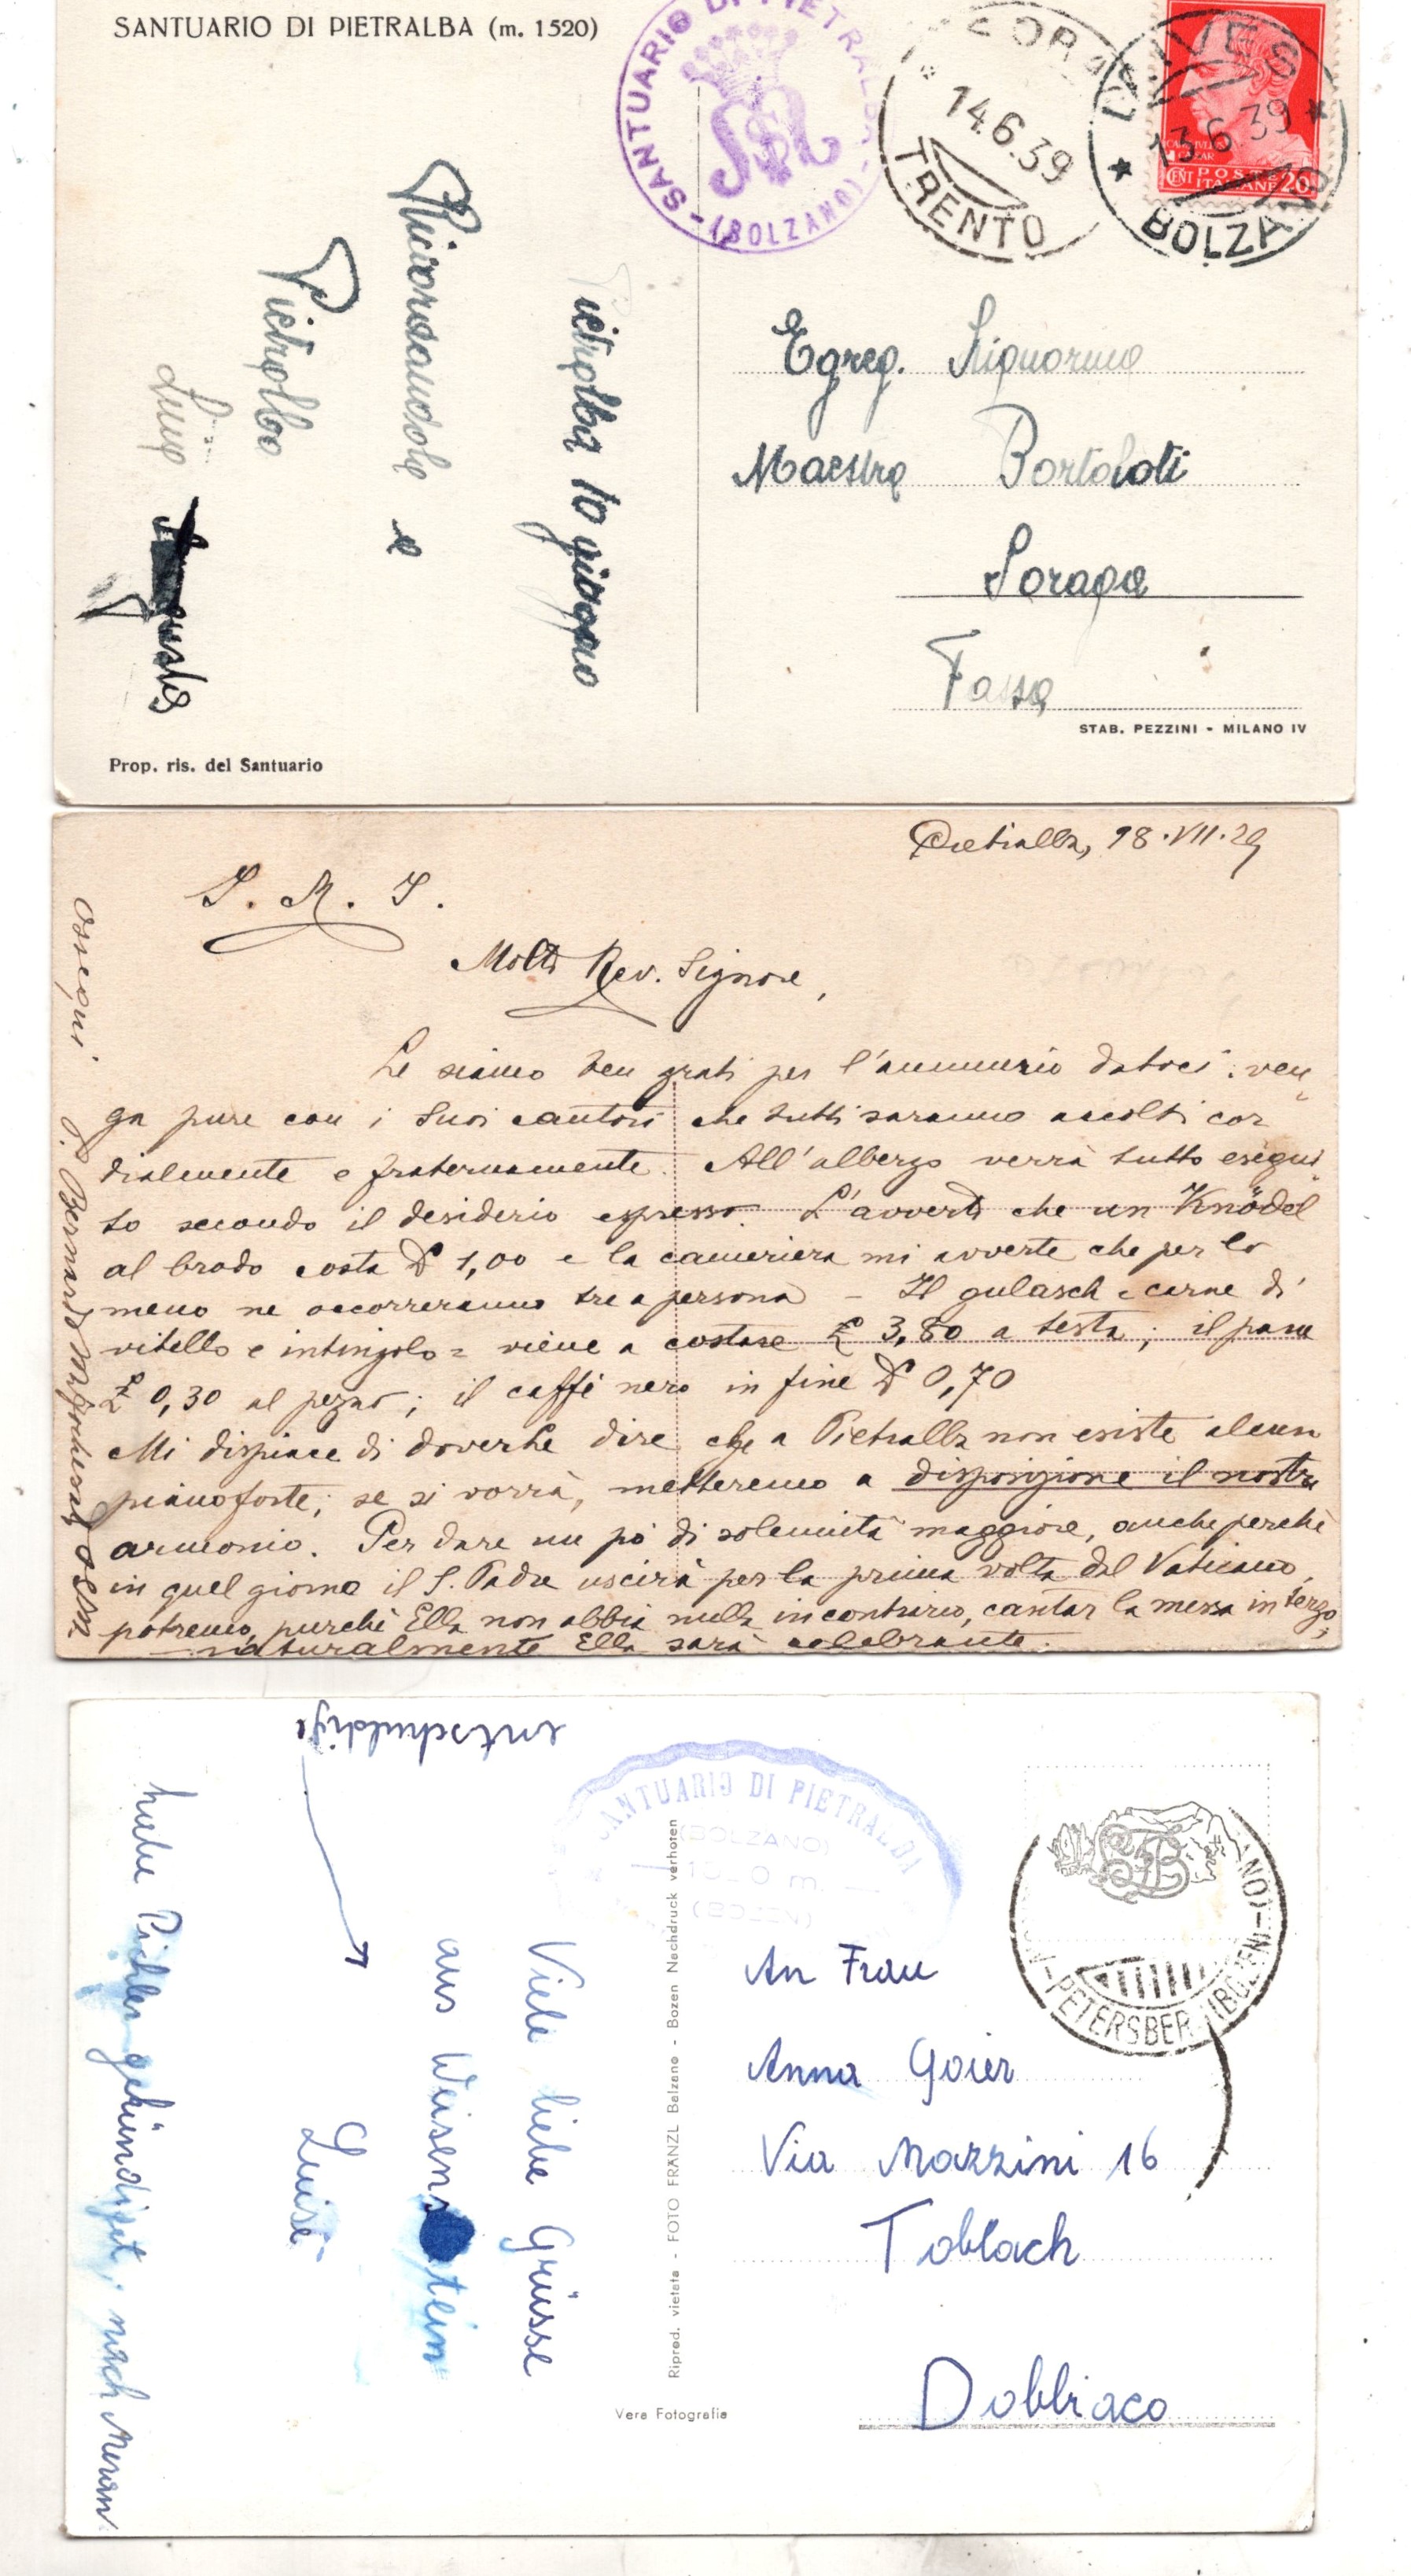 SANTUARIO DI PIETRALBA (m. 1520)
SANTUARIO DI PIETRALBA - (BOLZANO) -
SORAGA
14.6.39
TRENTO
LAIVES
13.6.39
BOLZANO
POSTE
CENT ITALIANE 20
Pietralba 10 giugno
Ricordandola e
Pietralba
Egreg. Signorina
Maestra Bortoloti
Soraga
Fassa
STAB. PEZZINI - MILANO IV
Prop. ris. del Santuario
Pietralba, 18.VII.29
S. M. I.
Molto Rev. Signore,
Le siamo ben grati per l'annunzio datoci: ven
ga pure con i Suoi cantori che tutti saranno accolti cor
dialmente e fraternamente. All'albergo verrà tutto esegui
to secondo il desiderio espresso. L'avverto che un Knödel
al brodo costa £ 1,00 e la cameriera mi avverte che per lo
meno ne occorreranno tre a persona - Il gulasch = carne di
vitello e intingolo = viene a costare £ 3,80 a testa; il pane
£ 0,30 al pezzo; il caffè nero in fine £ 0,70
Mi dispiace di doverLe dire che a Pietralba non esiste alcun
pianoforte; se si vorrà, metteremo a disposizione il nostro
armonio. Per dare un pò di solennità maggiore, anche perchè
in quel giorno il S. Padre uscirà per la prima volta dal Vaticano,
potremo, purchè Ella non abbia nulla in contrario, cantar la messa in terzo,
naturalmente Ella sarà celebrante.
Ossequi
Bernardo M. OSM
entschuldige
SANTUARIO DI PIETRALBA
(BOLZANO)
1520 m.
(BOZEN)
PETERSBERG (BOZEN)
Viele liebe Grüsse
aus Weisenstein
Luise
habe Pichler gekündiget, nach Meran
Ripred. vietata - FOTO FRÄNZL Balzano - Bozen Nachdruck verhoten
Vera Fotografia
An Frau
Anna Goier
Via Mazzini 16
Toblach
Dobbiaco